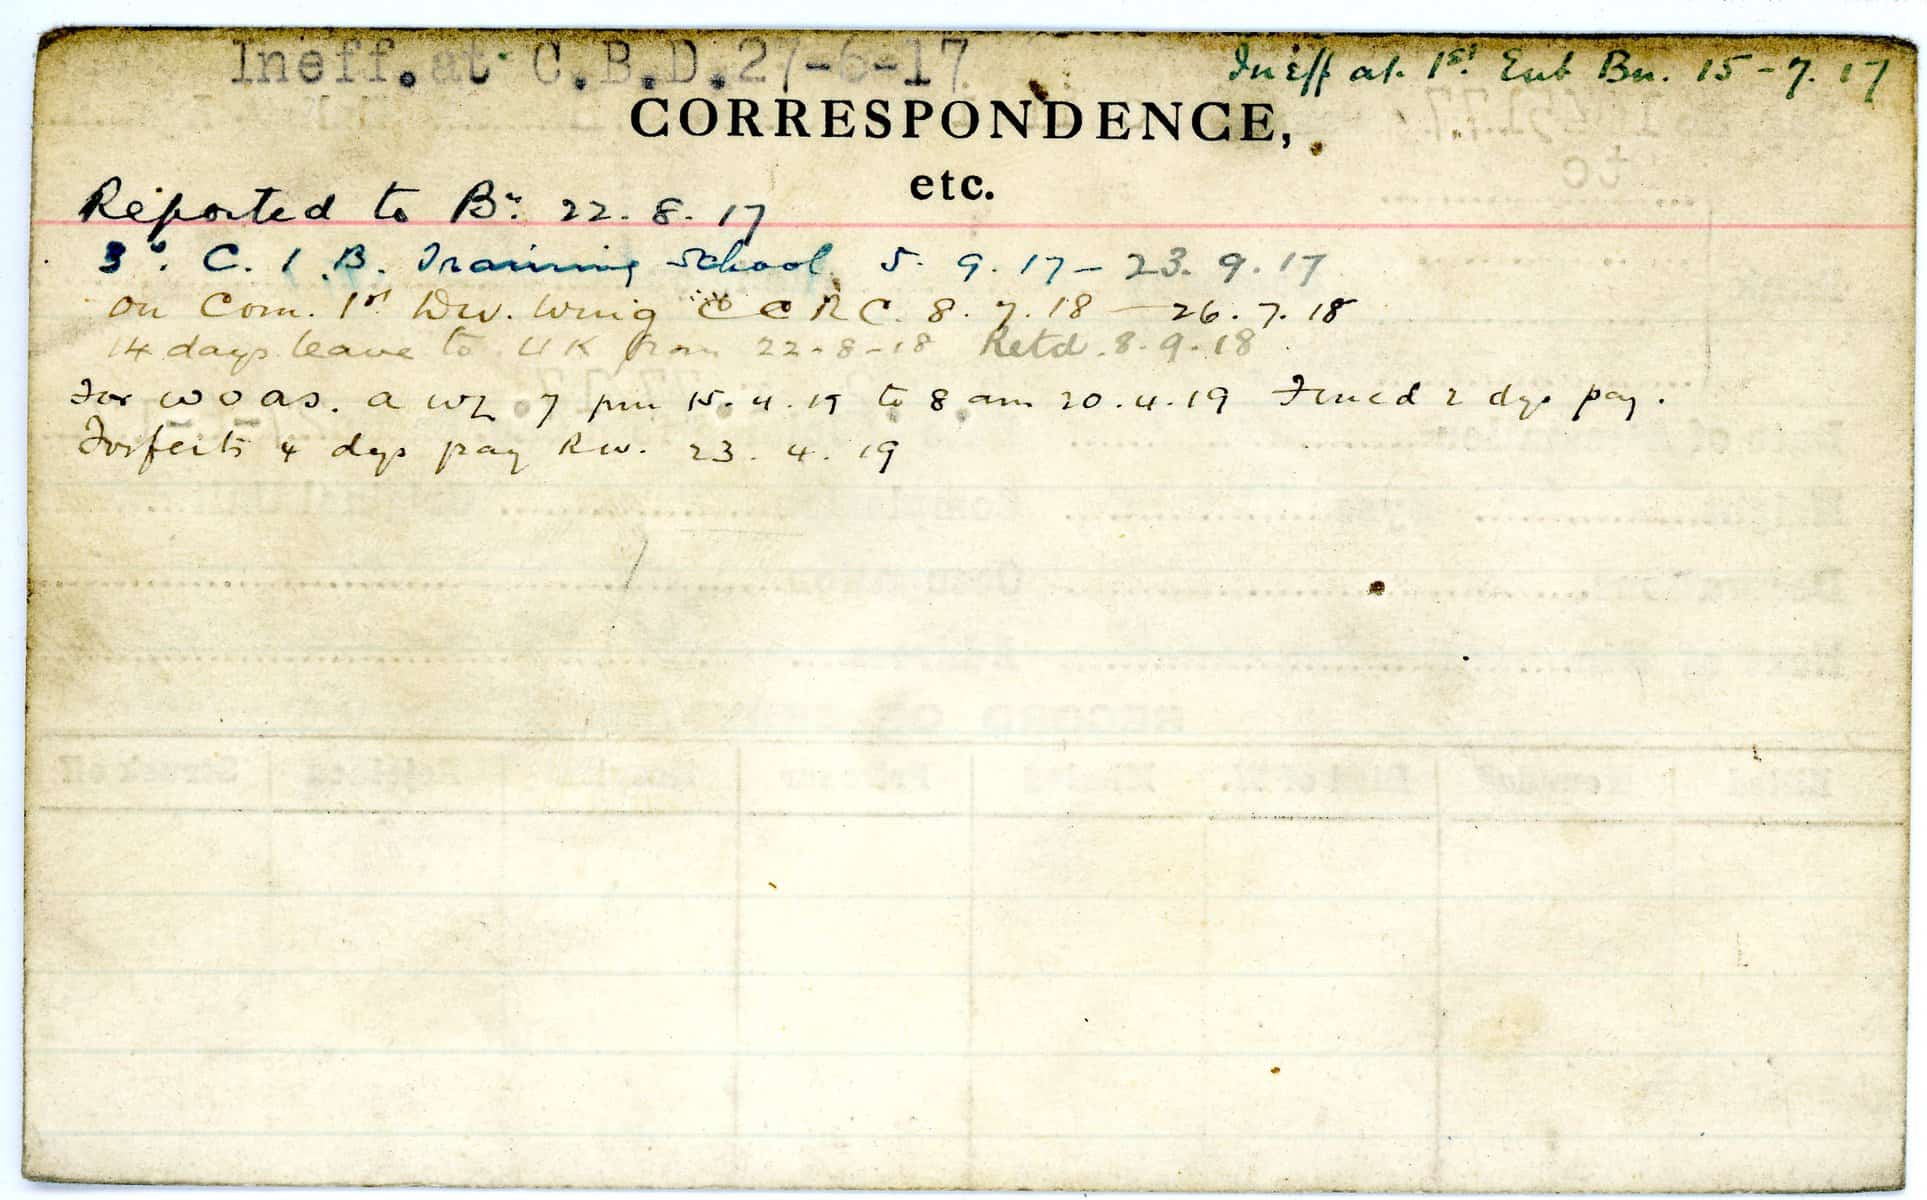 Ineff. at C.B.D. 27-6-17
Ineff at 1st Ent Bn. 15-7.17
CORRESPONDENCE,
etc.
Reported to Bn. 22.8.17
C.I.B. Training School 5.9.17 - 23.9.17
On Com. 1st Div. Wing C C R C. 8.7.18 - 26.7.18
14 days leave to UK from 22-8-18 Retd. 8-9-18
For W O A S. A W L 7 pm 15.4.19 to 8 am 20.4.19 Fined 2 dys pay.
Forfeits 4 dys pay RW. 23.4.19